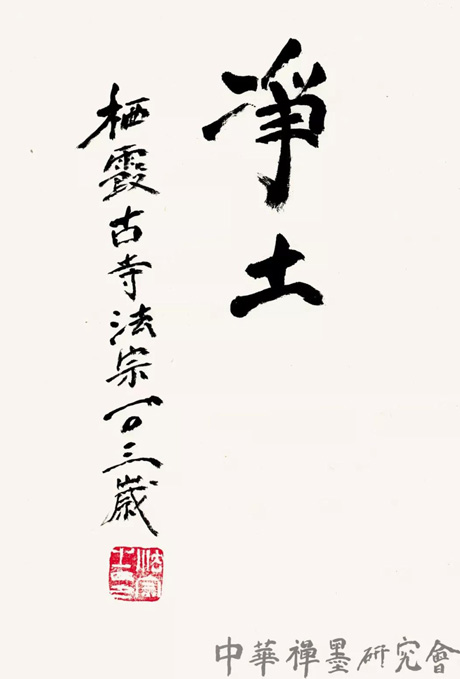 凈土
栖霞古寺法宗一〇三歲
中華禪墨研究會